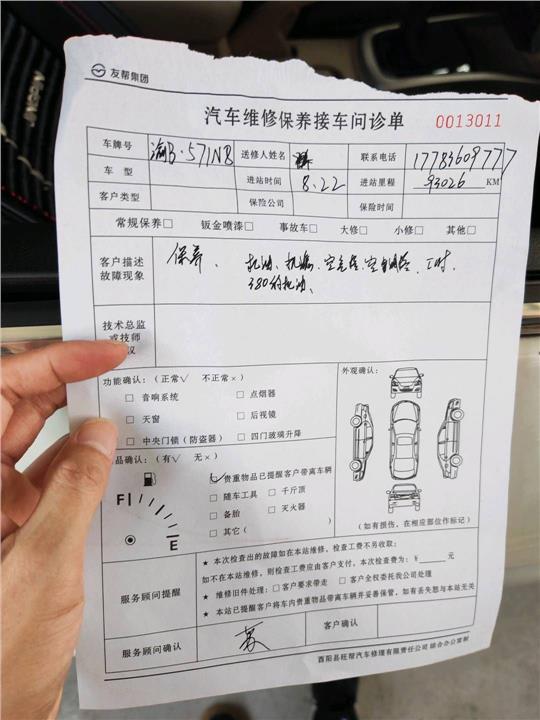 友帮集团
汽车维修保养接车问诊单
0013011
车牌号 渝B·571N8 送修人姓名 联系电话 17783609777
车 型 进站时间 8.22 进站里程 93026 KM
客户类型 保险公司 保险时间
常规保养□ 钣金喷漆□ 事故车□ 大修□ 小修□ 其他□
客户描述 保养、 机油、机滤、空气格、空调格、工时、
故障现象 380的机油、
技术总监
或技师
议
功能确认:(正常√ 不正常×) 外观确认:
□ 音响系统 □ 点烟器
□ 天窗 □ 后视镜
□ 中央门锁(防盗器) □ 四门玻璃升降
品确认:(有√ 无×)
☑ 贵重物品已提醒客户带离车辆
□ 随车工具 □ 千斤顶
□ 备胎 □ 灭火器
□ 其它(
F E
(如有损伤,在相应部位作标记)
★ 本次检查出的故障如在本站维修,检查工费不另收取;
如不在本站维修,则检查工费应由客户支付,本次检查费为:¥ 元
服务顾问提醒 ★ 维修旧件处理:□ 客户要求带走 □ 客户全权委托我公司处理
★ 本站已提醒客户将车内贵重物品带离车辆并妥善保管,如有丢失恕与本站无关
服务顾问确认 客户确认
酉阳县旺帮汽车修理有限责任公司 综合办公室制